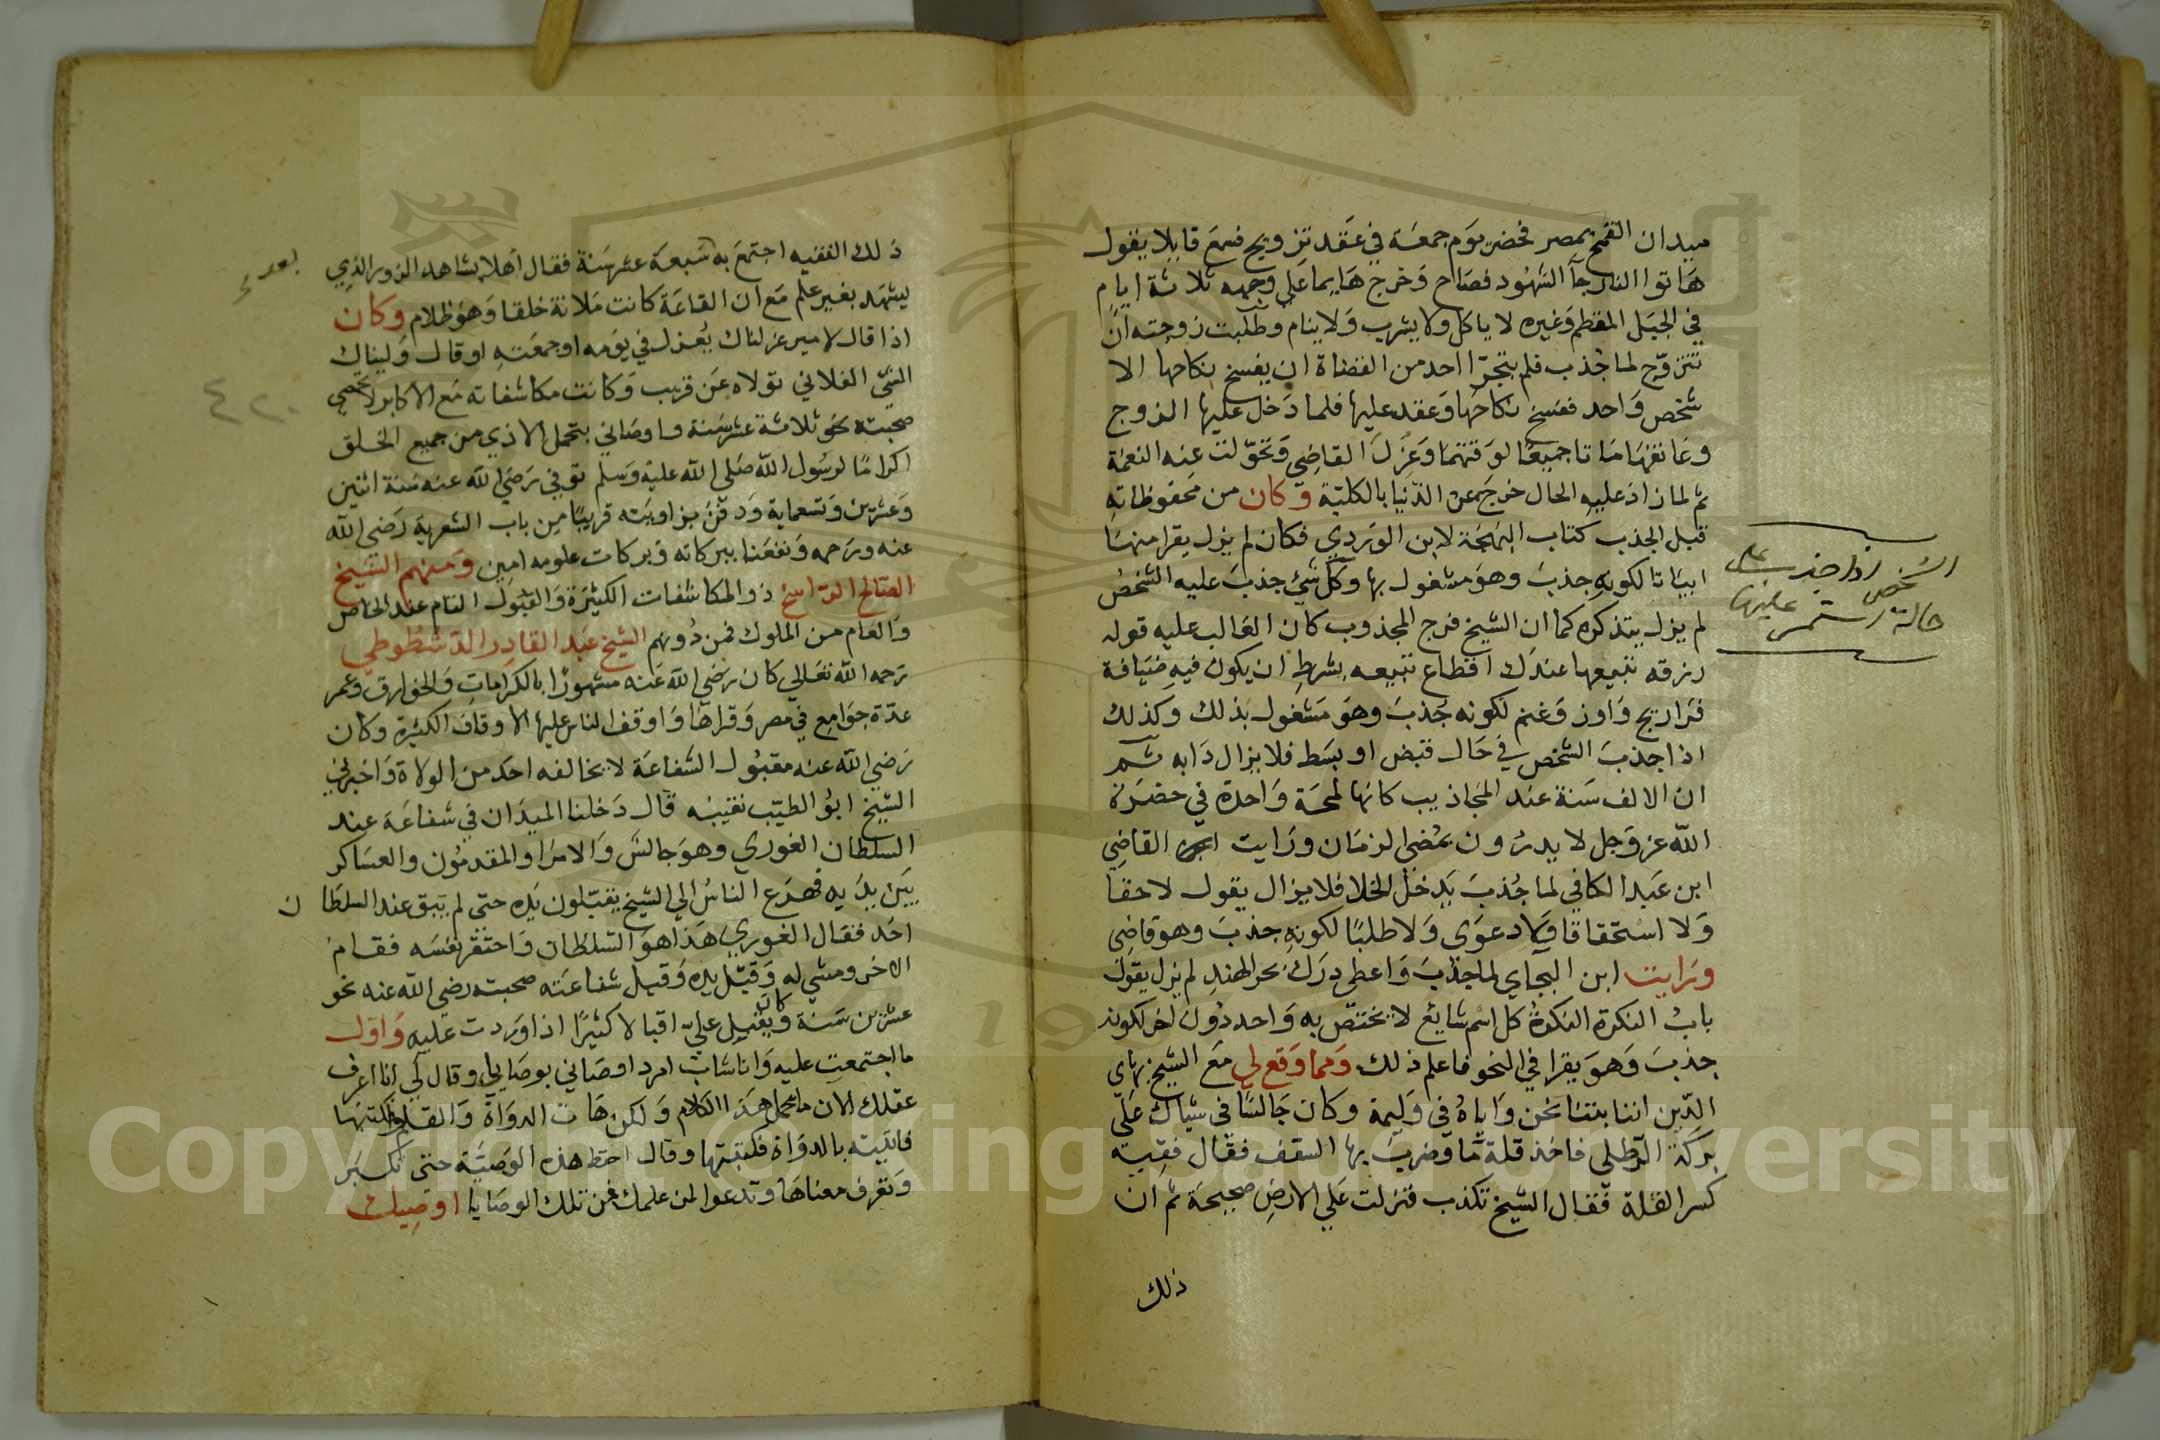 ميدان القمح بمصر فحضر يوم جمعة في عقد تزويج فسمع قايلا يقول
هاتوا النار جآ الشهود فصاح وخرج هايما علي وجهه ثلاثة ايام
في الجبل المقطم وغيره لا ياكل ولا يشرب ولا ينام وطلبت زوجته ان
تتزوج لما جذب فلم يتجرّا احد من القضاة ان يفسخ نكاحها الا
شخص واحد ففسخ نكاحها وعقد عليها فلما دخل عليها الزوج
وعانقها ماتا جميعا لوقتهما وعزل القاضي وتحولت عنه النعمة
ثم لما زاد عليه الحال خرج عن الدنيا بالكلية وكان من محفوظاته
قبل الجذب كتاب البهجة لابن الوردي فكان لم يزل يقرا منها
ابياتا لكونه جذب وهو مشغول بها وكل شئ جذب عليه الشخص
لم يزل يتذكره كما ان الشيخ فرج المجذوب كان الغالب عليه قوله
رزقه نتبيعها عندك اقطاع نتبيعه بشرط ان يكون فيه ضيافة
فراريج واوز وغنم لكونه جذب وهو مشغول بذلك وكذلك
اذا جذب الشخص في حال قبض او بسط فلا يزال دابه ثم
ان الالف سنة عند المجاذيب كانها لمحة واحدة في حضرة
الله عز وجل لا يدرون بمضي الزمان ورايت القاضي
ابن عبد الكافي لما جُذب يدخل الخلا فلا يزال يقول لا حقا
ولا استحقاقا ولا دعوى ولا طلبا لكونه جذب وهو قاضي
ورايت ابن البجاي لما جذب واعطي درك بحر الهند لم يزل يقول
باب النكرة النكرة كل اسم شايع لا يختص به واحد دون اخر لكونه
جذب وهو يقرا في النحو فاعلم ذلك ومما وقع لي مع الشيخ بهاي
الدين اننا بتنا نحن واياه في وليمة وكان جالسا في شباك علي
بركة الرطلي فاخذ قلة ما وضرب بها السقف فقال فقيه
كسر القلة فقال الشيخ تكذب فنزلت علي الارض صحيحة ثم ان
ذلك
الشخص اذا جذب علي
حالة استمر عليها
ذلك الفقيه اجتمع به بعد سبعة عشر سنة فقال اهلا بشاهد الزور الذي
يشهد بغير علم مع ان القاعة كانت ملانة خلقا وهو ظلام وكان
اذا قال لامير عزلناك يُعزل في يومه او جمعته او قال وليناك
الشئ الفلاني تولاه عن قريب وكانت مكاشفاته مع الاكابر لا تحصي
صحبته نحو ثلاثة عشر سنة واوصاني بتحمل الاذي من جميع الخلق
اكراما لرسول الله صلي الله عليه وسلم توفي رضي الله عنه سنة اثنين
وعشرين وتسعماية ودفن بزاويته قريبا من باب الشعرية رضي الله
عنه ورحمه ونفعنا ببركاته وبركات علومه امين ومنهم الشيخ
الصالح الراسخ ذو المكاشفات الكثيرة والقبول التام عند الخاص
والعام من الملوك فمن دونهم الشيخ عبد القادر الدشطوطي
رحمه الله تعالي كان رضي الله عنه مشهورا بالكرامات والخوارق وعمر
عدة جوامع في مصر وقراها واوقف الناس عليها الاوقاف الكثيرة وكان
رضي الله عنه مقبول الشفاعة لا يخالفه احد من الولاة واخبرني
الشيخ ابو الطيب نقيبه قال دخلنا الميدان في شفاعة عند
السلطان الغوري وهو جالس والامرا والمقدمون والعساكر
بين يديه فهرع الناس الي الشيخ يقبلون يده حتى لم يبق عند السلطان
احد فقال الغوري هذا هو السلطان واحتقر نفسه فقام
الاخر ومشي له وقبل يده وقبل شفاعته صحبته رضي الله عنه نحو
عشرين سنة وكان يقبل علي اقبالا كثيرا اذا وردت عليه واول
ما اجتمعت عليه وانا شاب امرد اوصاني بوصايا وقال لي انا اعرف
عقلك الان ما يحمل هذا الكلام ولكن هات الدواة والقلم واكتبها
فاتيته بالدواة فكتبتها وقال احفظ هذه الوصية حتى تكبر
وتعرف معناها وتدعوا لمن علمك فمن تلك الوصايا اوصيك
٤٢٠